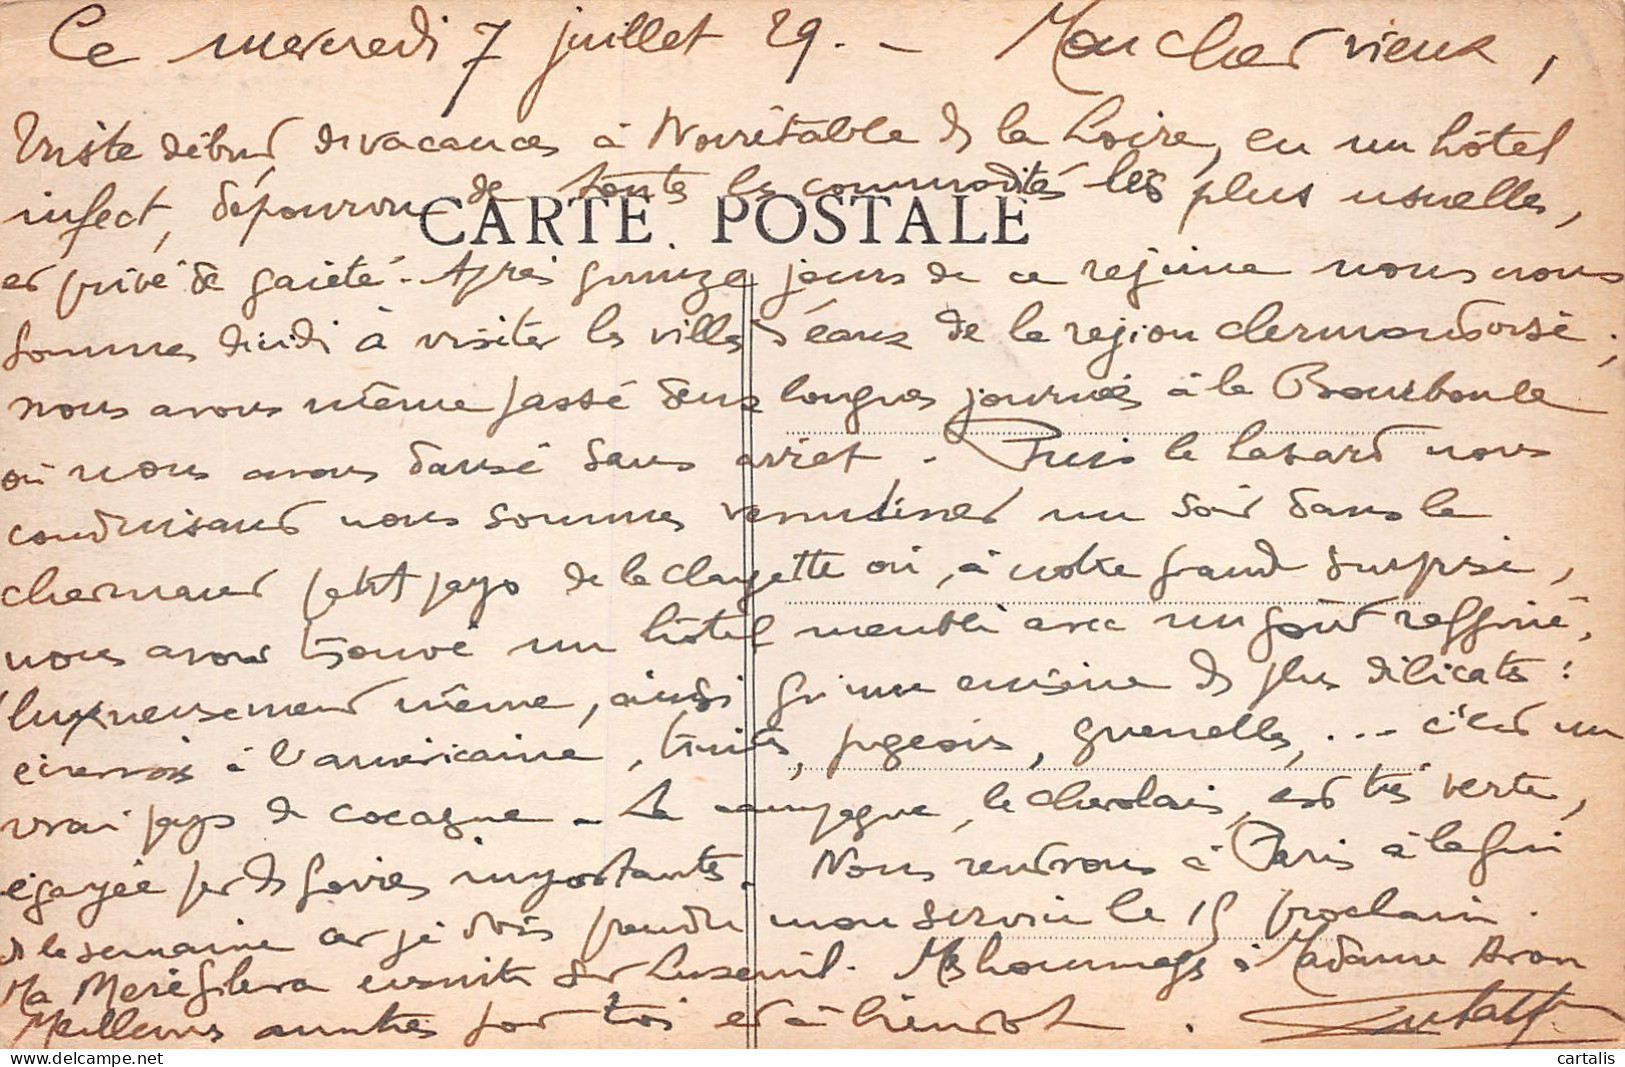 Ce mercredi 7 juillet 29. - Mon cher vieux,
Triste début de vacances à Noirétable ds la Loire, en un hôtel
infect, dépourvu de toutes les commodités les plus usuelles,
CARTE POSTALE
et privé de gaieté. Après quinze jours de ce régime nous nous
sommes décidé à visiter les villes d'eaux de la région clermontoise ;
nous avons même passé deux longues journées à la Bourboule
où nous avons dansé sans arrêt. Puis le hasard nous
conduisant nous sommes venu dîner un soir dans le
charmant petit pays de la Clayette où, à notre grande surprise,
nous avons trouvé un hôtel meublé avec un goût raffiné,
luxueusement même, ainsi qu'une cuisine ds plus délicates :
écrevisses à l'américaine, truites, pigeons, quenelles, ... c'est un
vrai pays de cocagne - La campagne, le charolais, est très verte,
égayée par ds foires importantes. Nous rentrons à Paris à la fin
de la semaine car je dois prendre mon service le 15 prochain.
Ma Mère filera ensuite sur Luxeuil. Mes hommages à Madame Aron
Meilleures amitiés pour toi et à bientôt.
cartalis